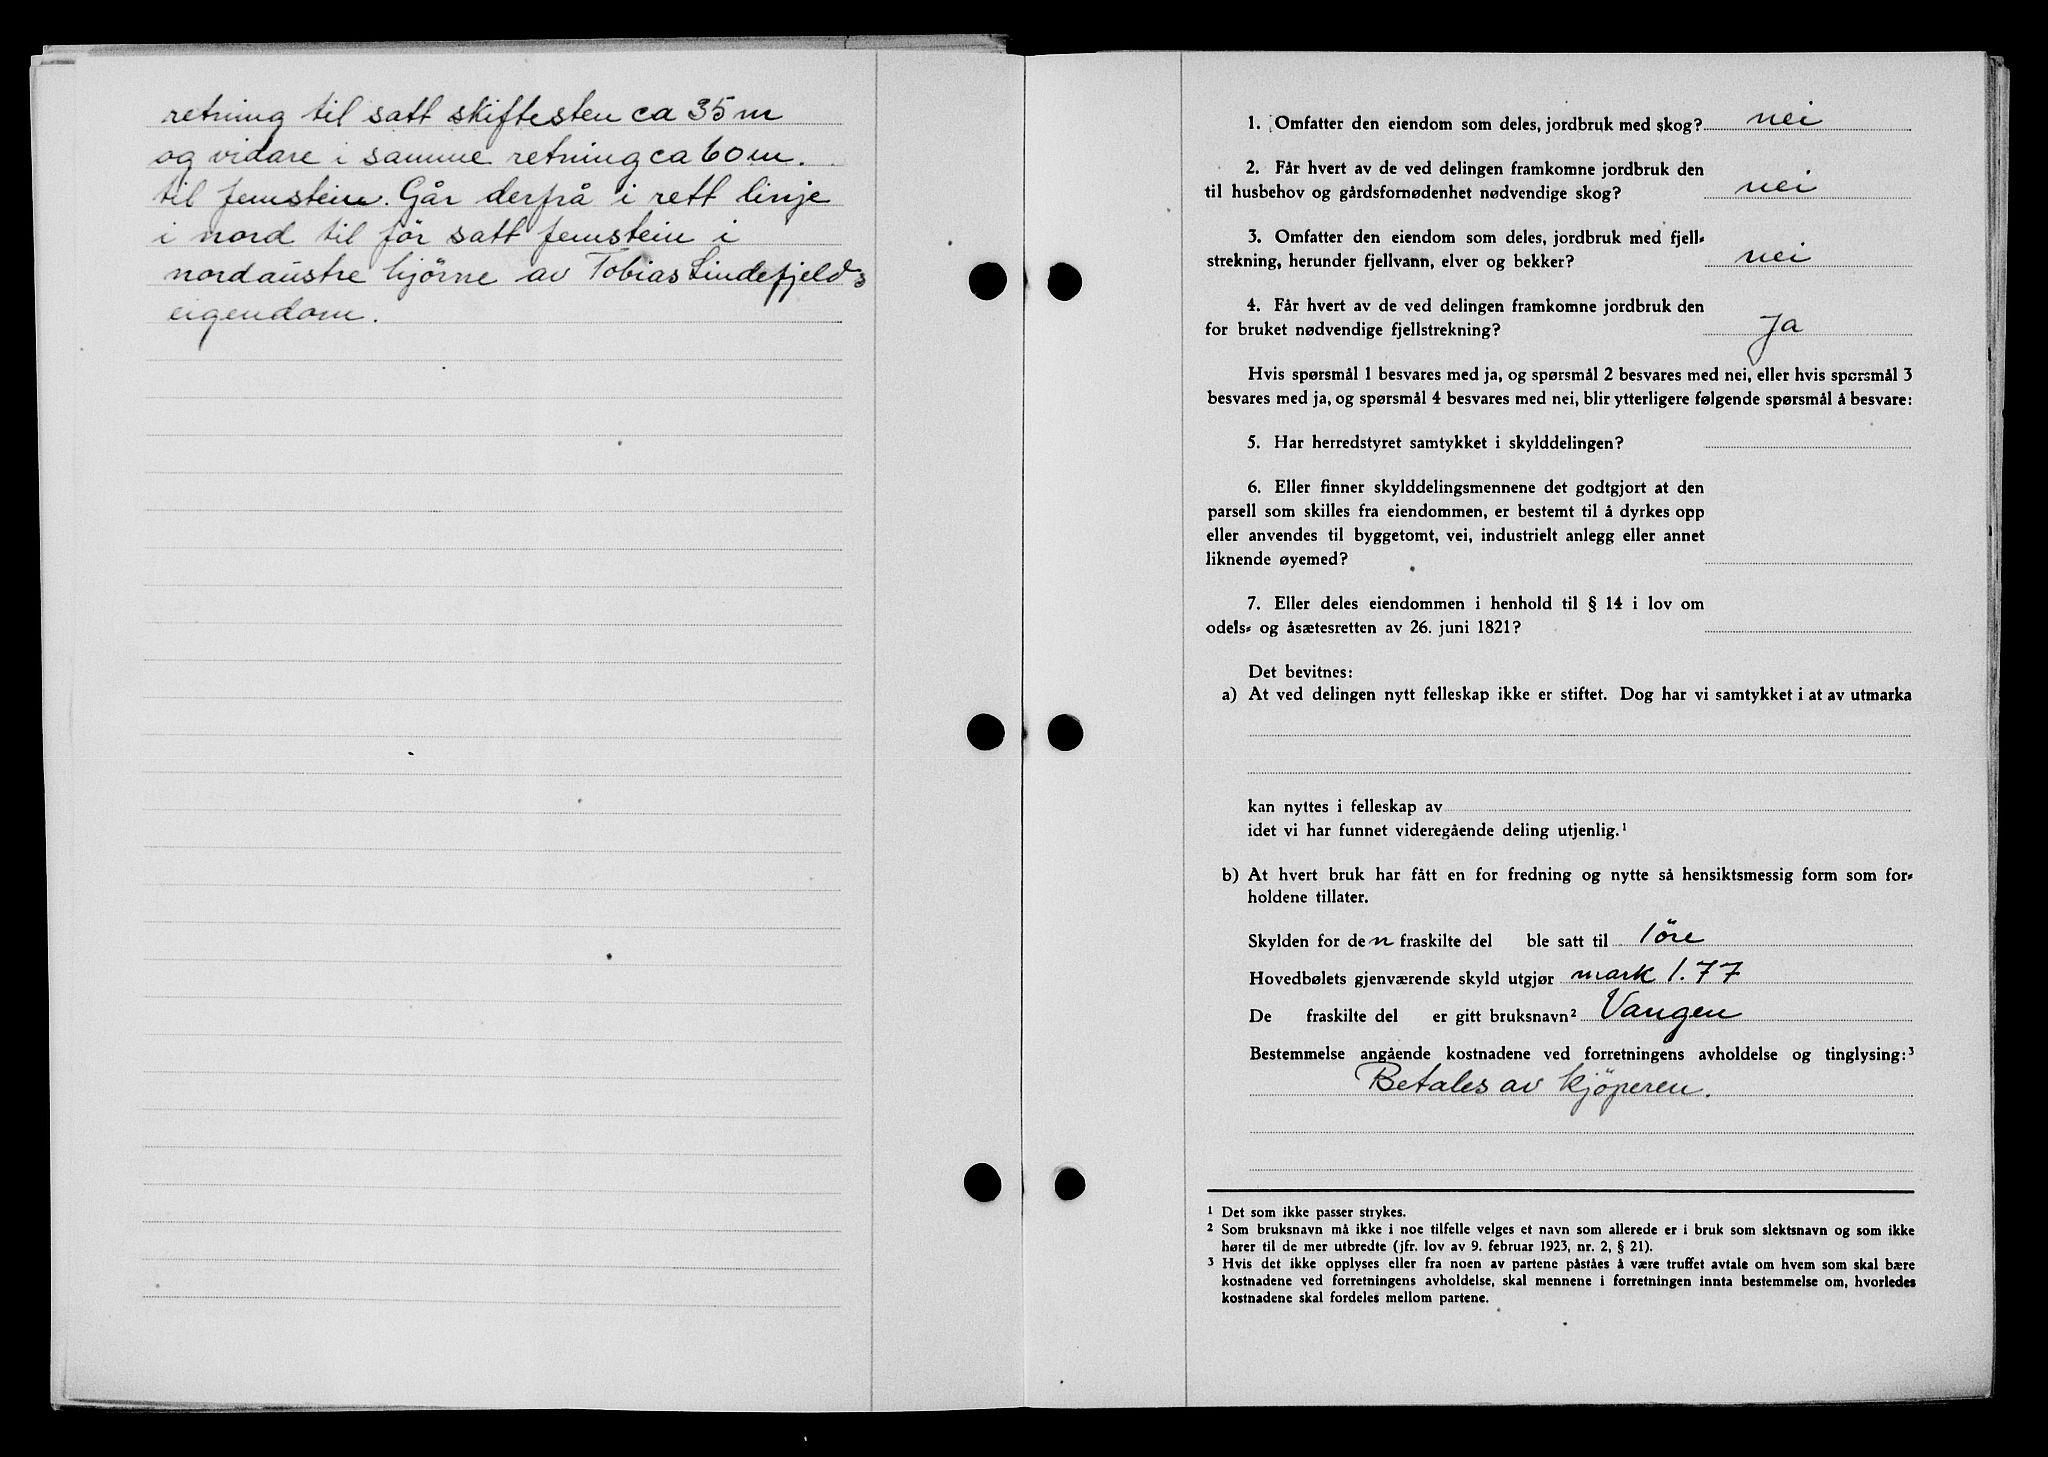 retning til satt skiftesten ca 35 m
og vidare i samme retning ca 60 m.
til jemstein. Går derfrå i rett linje
i nord til før satt jemstein i
nordaustre hjörne av Tobias Lindefjelds
eigendom.
1. Omfatter den eiendom som deles, jordbruk med skog? nei
2. Får hvert av de ved delingen framkomne jordbruk den
til husbehov og gårdsfornødenhet nødvendige skog? nei
3. Omfatter den eiendom som deles, jordbruk med fjell-
strekning, herunder fjellvann, elver og bekker? nei
4. Får hvert av de ved delingen framkomne jordbruk den
for bruket nødvendige fjellstrekning? Ja
Hvis spørsmål 1 besvares med ja, og spørsmål 2 besvares med nei, eller hvis spørsmål 3
besvares med ja, og spørsmål 4 besvares med nei, blir ytterligere følgende spørsmål å besvare:
5. Har herredstyret samtykket i skylddelingen?
6. Eller finner skylddelingsmennene det godtgjort at den
parsell som skilles fra eiendommen, er bestemt til å dyrkes opp
eller anvendes til byggetomt, vei, industrielt anlegg eller annet
liknende øyemed?
7. Eller deles eiendommen i henhold til § 14 i lov om
odels- og åsætesretten av 26. juni 1821?
Det bevitnes:
a) At ved delingen nytt felleskap ikke er stiftet. Dog har vi samtykket i at av utmarka
kan nyttes i felleskap av
idet vi har funnet videregående deling utjenlig.¹
b) At hvert bruk har fått en for fredning og nytte så hensiktsmessig form som for-
holdene tillater.
Skylden for den fraskilte del ble satt til 1 öre
Hovedbølets gjenværende skyld utgjør mark 1.77
De fraskilte del er gitt bruksnavn² Vangen
Bestemmelse angående kostnadene ved forretningens avholdelse og tinglysing:³
Betales av kjöperen.
¹ Det som ikke passer strykes.
² Som bruksnavn må ikke i noe tilfelle velges et navn som allerede er i bruk som slektsnavn og som ikke
hører til de mer utbredte (jfr. lov av 9. februar 1923, nr. 2, § 21).
³ Hvis det ikke opplyses eller fra noen av partene påståes å være truffet avtale om hvem som skal bære
kostnadene ved forretningens avholdelse, skal mennene i forretningen innta bestemmelse om, hvorledes
kostnadene skal fordeles mellom partene.